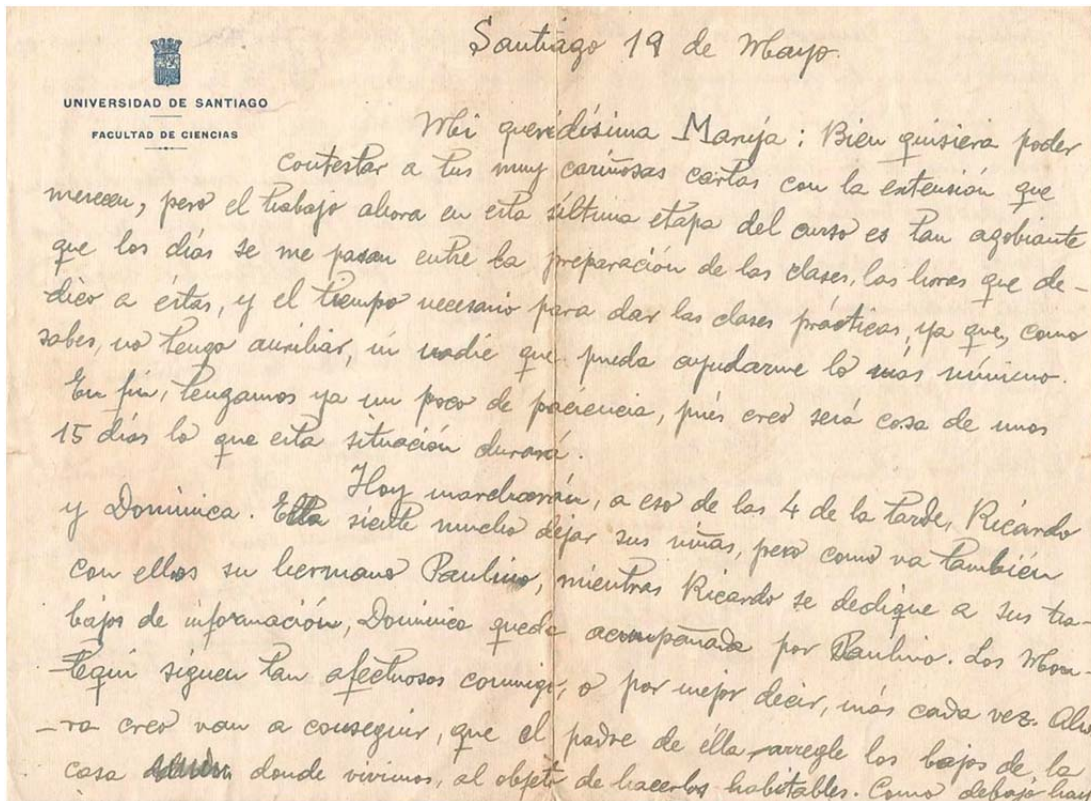 UNIVERSIDAD DE SANTIAGO
FACULTAD DE CIENCIAS
Santiago 19 de Mayo.
Mi queridísima Maruja: Bien quisiera poder
contestar a tus muy cariñosas cartas con la extensión que
merecen, pero el trabajo ahora en esta última etapa del curso es tan agobiante
que los días se me pasan entre la preparación de las clases, las horas que de-
dico a éstas, y el tiempo necesario para dar las clases prácticas, ya que, como
sabes, no tengo auxiliar, ni nadie que pueda ayudarme lo más mínimo.
En fin, tengamos ya un poco de paciencia, pués creo será cosa de unos
15 días lo que esta situación durará.
Hoy marcharán, a eso de las 4 de la tarde, Ricardo
y Dominica. Ella siente mucho dejar sus niñas, pero como va también
con ellos su hermano Paulino, mientras Ricardo se dedique a sus tra-
bajos de información, Dominica queda acompañada por Paulino. Los
siguen tan afectuosos conmigo, o por mejor decir, más cada vez. Aho
-ra creo van a conseguir, que el padre de élla arregle los bajos de la
casa donde vivimos, al objeto de hacerlos habitables. Como debajo hay